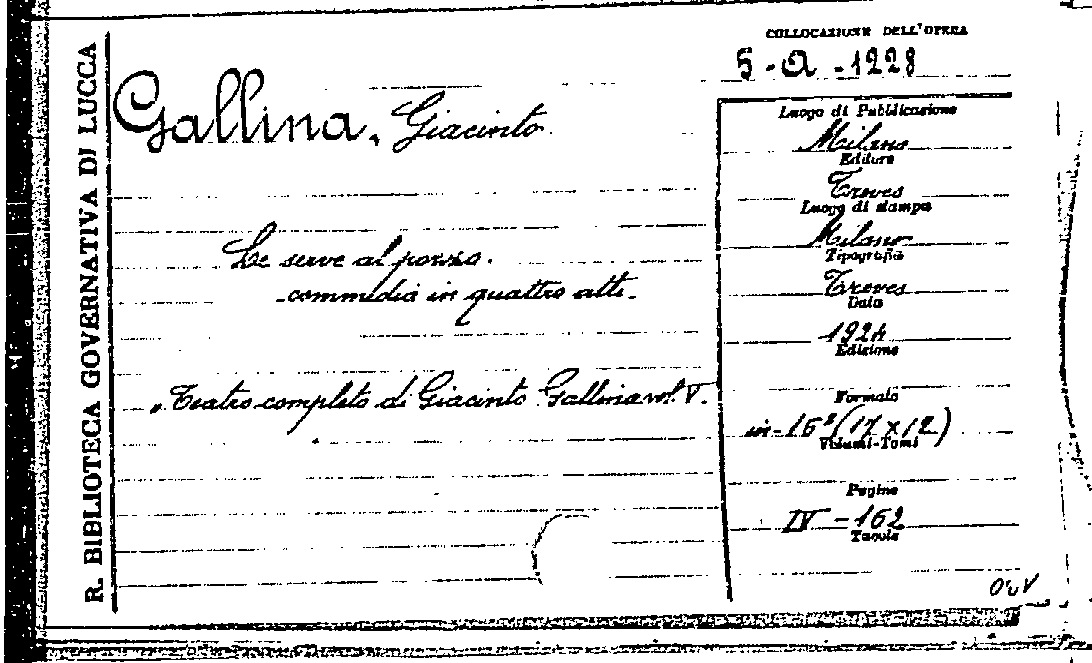 R. BIBLIOTECA GOVERNATIVA DI LUCCA
COLLOCAZIONE DELL'OPERA
5-a-1228
Gallina, Giacinto
Le serve al pozzo.
commedia in quattro atti.
"Teatro completo di Giacinto Gallina vol. V.
Luogo di Pubblicazione
Milano
Editore
Treves
Luogo di stampa
Milano
Tipografia
Treves
Data
1924
Edizione
Formato
in-16° (17 x 12)
Volumi-Tomi
Pagine
IV - 162
Tavole